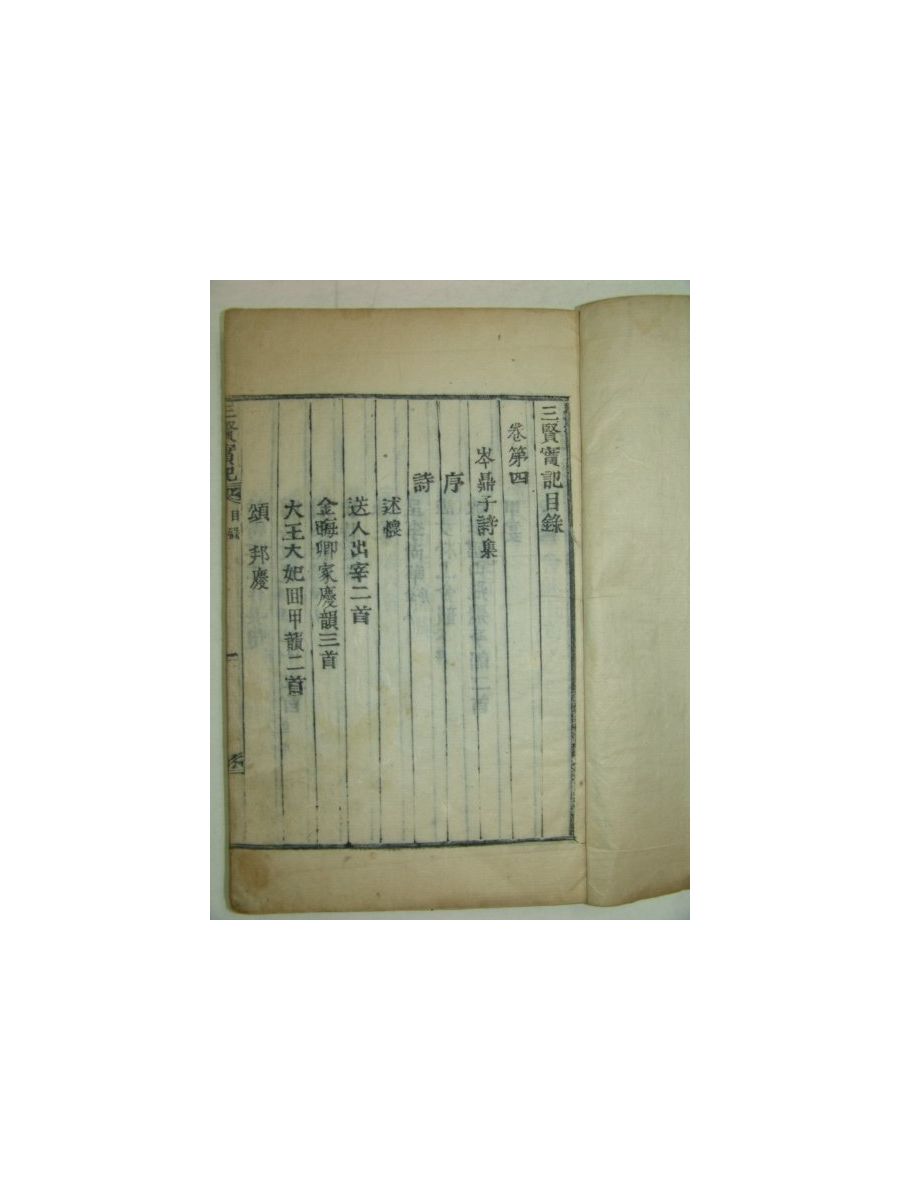 三賢實記目錄
卷第四
岑鼎子詩集
序
詩
述懷
送人出宰二首
金晦卿家慶韻三首
大王大妃回甲韻二首
頌邦慶
三賢實記 目錄